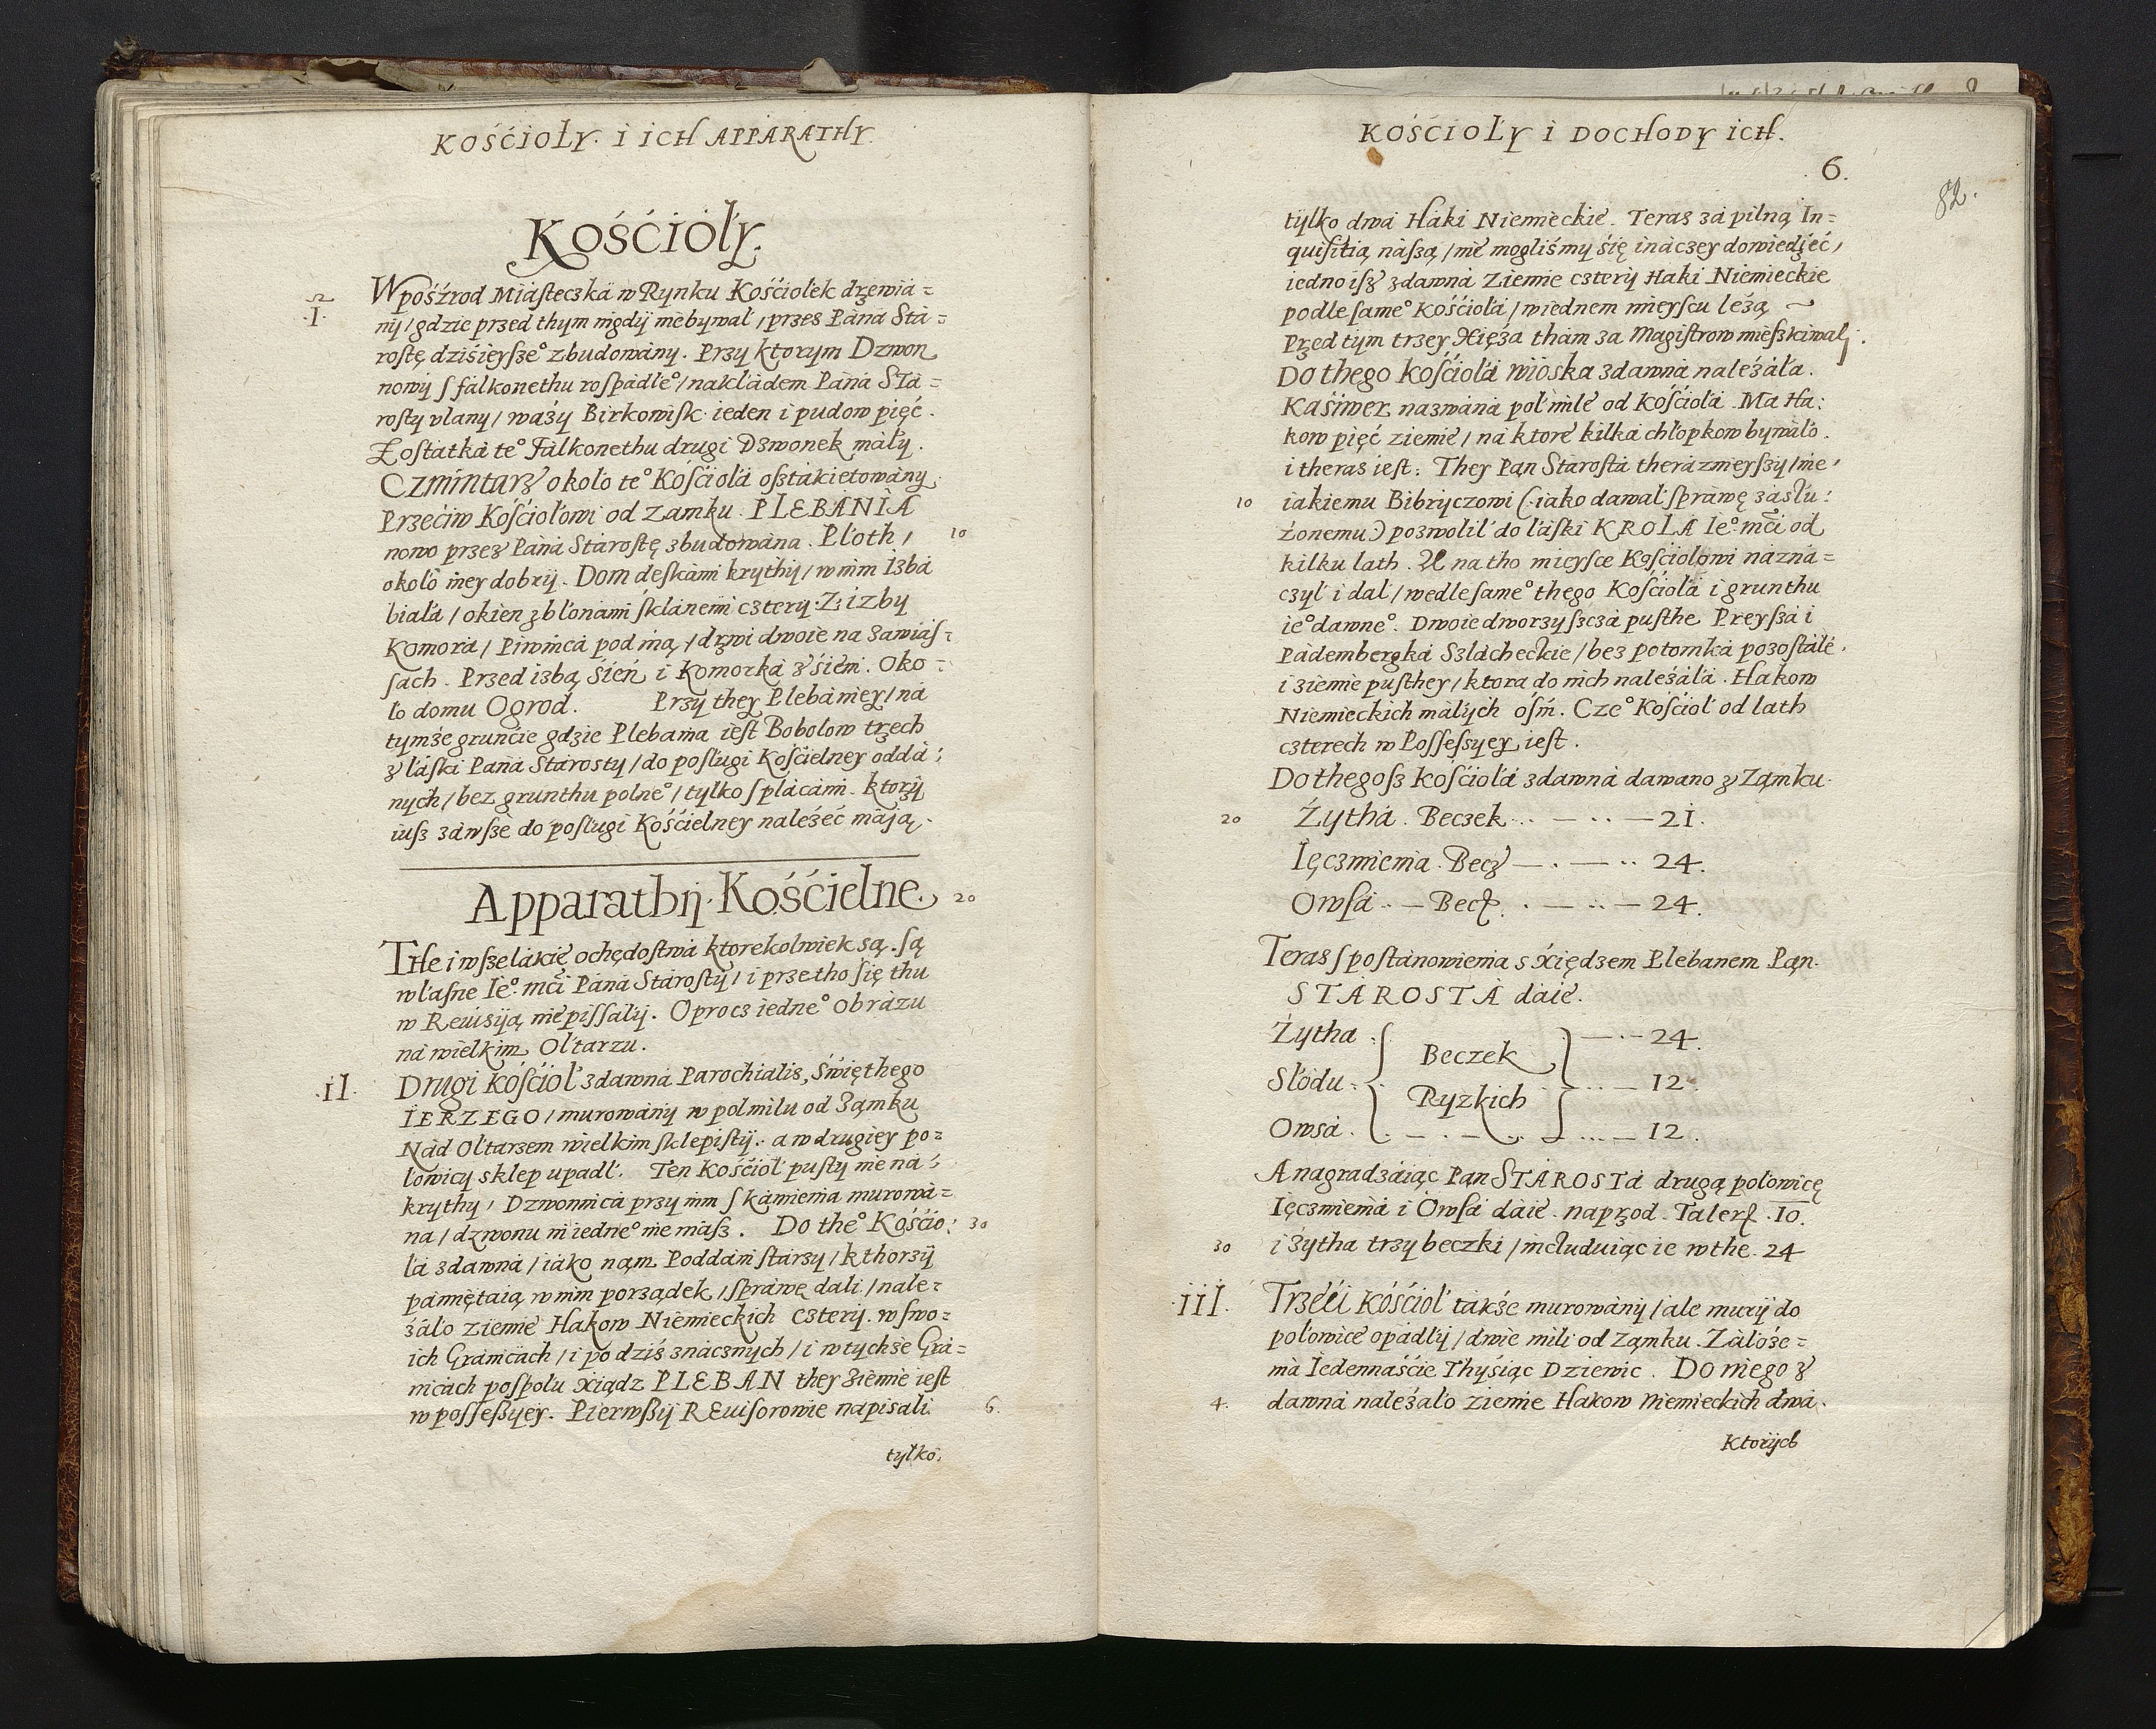 KOŚĆIOŁY. I ICH APPARATHY.
Kośćioły.
I. Wpośźrod Miásteczká w Rynku Kośćiołek drzewiá=
ny / gdzie przed thym nigdÿ niebywał / przes Páná Stá=
rostę dziśieyſze° zbudowány. Przy ktorym Dzwon
nowy ſ fálkonethu rospádłe° / nakłádem Páná STá=
rosty vlany / waży Birkowiſk ieden i pudow pięć.
Zostatká te° Fálkonethu drugi Dzwonek máły.
Czmintarz około te° Kośćiołá osztákietowány.
Przećiw Kośćiołowi od Zamku PLEBANIA
nowo przez Páná Stárostę zbudowána. Płoth / 10
około niey dobrÿ. Dom deskámi krythÿ / w nim Izbá
biała / okien z błonámi śklánemi cztery. Z izby
Komorá / Piwnicá pod nią / drzwi dwoie na Zawiás=
ſach. Przed izbą Śień i Komorká z śieni. Oko=
ło domu Ogrod. Przy they Plebániey / ná
tymże grunćie gdzie Plebania iest Bobolow trzech
z łáski Páná Stárosty / do posługi Kośćielney oddá:
nych / bez grunthu polne° / tylko ſ plácámi. ktorzÿ
iusz záwsze do posługi Kośćielney należeć máją.
Apparathÿ Kośćielne. 20
THe i wszelákie ochędostwá ktorekolwiek są. ſą
własne Ie°. mći Páná Stárostÿ / i przetho się thu
w Reuisiją nie pissalÿ. Oprocz iedne° Obrázu
ná wielkim Ołtarzu.
II. Drugi Kośćioł zdawná Parochialis, Świętheg​o
IERZEGO / murowány w połmilu od Zamku
Nád Ołtarzem wielkim sklepistÿ. a w drugiey po=
łowicy sklep upadł. Ten Kośćioł pusty nie ná=
krythy / Dzwonnicá przy nim ſ kámieniá murowá=
na / dzwonu ni iedne° nie mász. Do the° Kośćio: 30
łá zdawná / iáko nąm Poddáni stárzy / kthorzÿ
pámiętáią w nim porządek / spráwę dali / nale=
żáło ziemie Hakow Niemieckich czterÿ. w swo=
ich Gránicách / i po dziś znácznych / i w tychże Grá=
nicách pospołu Xiądz PLEBAN they ziemie iest
w possessyey. Pierwszÿ REuisorowie napisáli 6.
tylko.
KOŚĆIOŁY I DOCHODY ICH.
6.
82.
tylko dwá Háki Niemieckie. Teras zá pilną In=
quisitią nászą / nie mogliśmy się ináczey dowiedzieć /
iedno isz zdawná Ziemie cztery Haki Niemieckie
podle same° Kośćiołá / w iednem mieyscu leżą ~
Przed tym trzey Xięża tham za Magistrow mieszkiwalj.
Do thego Kośćiołá wioska zdawná należáłá.
Kaśiwer názwáná poł mile od Kośćiołá. Ma Ha:
kow pięć ziemie / ná ktore kilká chłopkow bywáło.
i theras iest: They Pan Stárostá therázniejszy / nie,
10 iakiemu Bibryczowi (: iáko dawał spráwę zásłu:
żonemu :) pozwolił do łáski KROLA Ie°. mći od
kilku lath. A na tho mieysce Kośćiołowi názná=
czył i dał / wedle same° thego Kośćiołá i grunthu
ie° dawne°. Dwoie dworzyszcza pusthe Preyszá i
Pádembergká Szlácheckie / bez potomká pozostáłe,
i ziemie pusthey / ktora do nich należáłá. Hakow
Niemieckich máłych ośm. Cze° Kośćioł od lath
czterech w Possessyey iest.
Do thegosz Kośćiołá zdawná dawano z Zámku.
20 Żythá. Beczek .. — .. — 21.
Ięczmieniá. Becz — . — .. 24.
Owsá .. — Becz. . — .. — 24.
Teras ſ postánowieniá s Xiędzem Plebanem Pąn.
STÁROSTÁ dáie.
Żythá . { Beczek } — . — 24.
Słodu . { Ryzkich } .. — 12.
Owsá . — . — .. — ... — 12.
A nagradzáiąc Pąn STÁROSTá drugą połowicę
Ięczmieniá i Owsá dáie. naprzod. Taler. 10.
30 i żythá trzy beczki / includuiąc ie w the. 24
III. Trzeći Kośćioł tákże murowánÿ / ale murÿ do
połowice opádłÿ / dwie mili od Zamku. Záłoże=
nia Iedennaśćie Thyśiąc Dziewic. Do niego z
4. dawná należáło ziemie Hakow Niemieckich dwá.
Ktorych